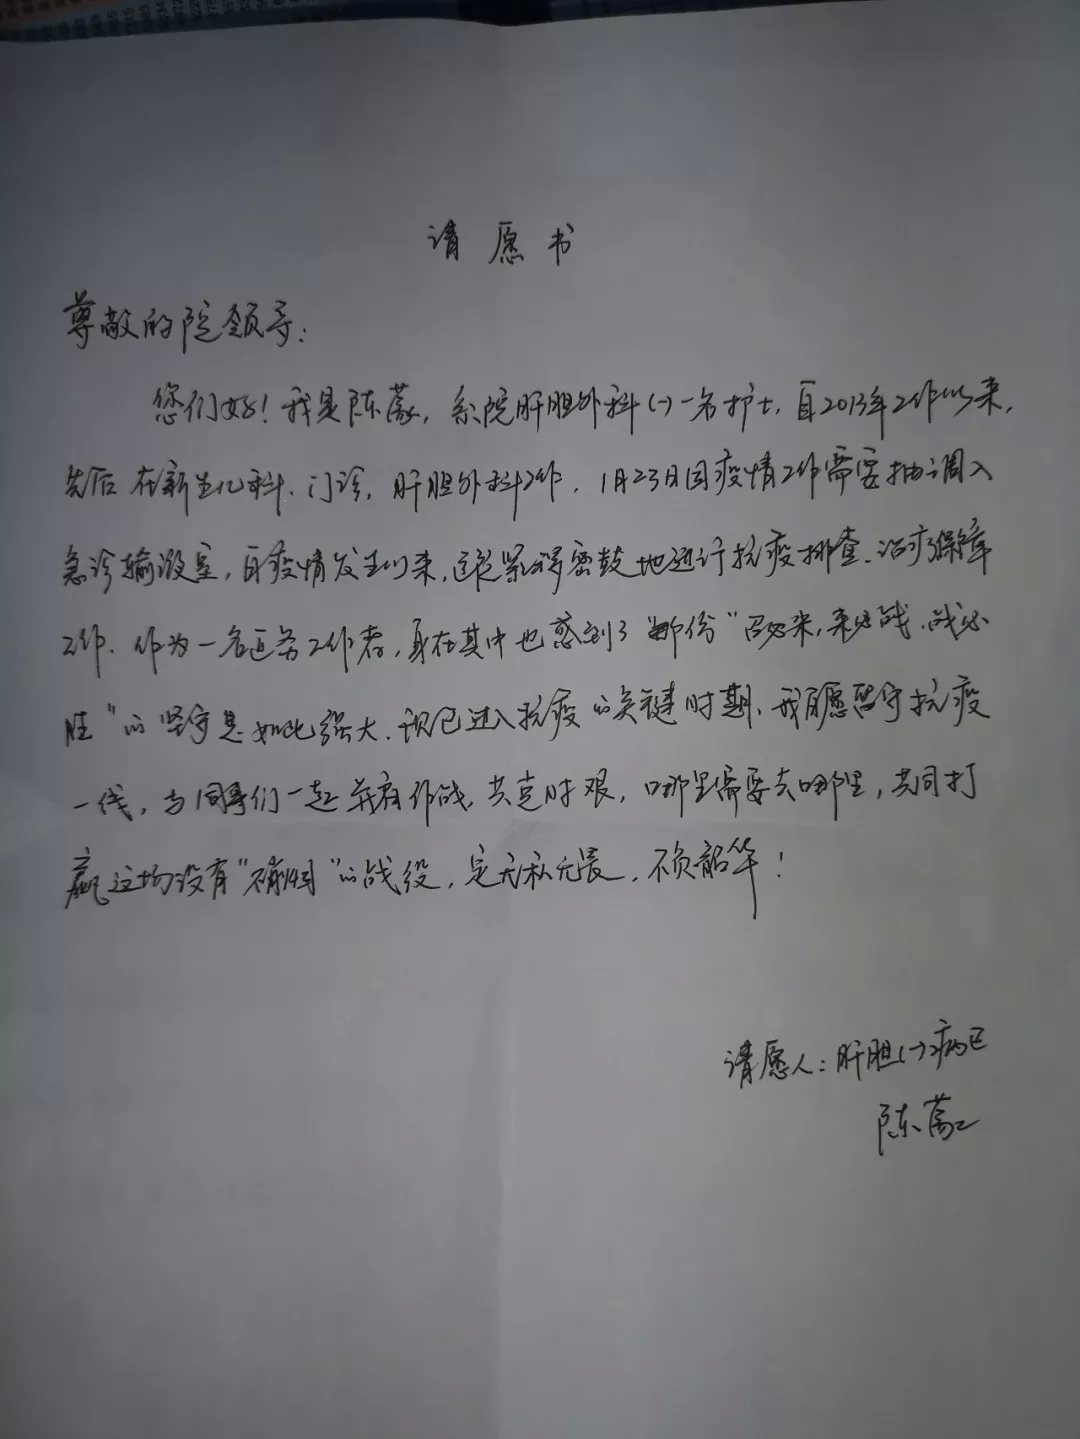 请愿书
尊敬的院领导:
您们好!我是陈蒙,系院肝胆外科(一)一名护士,自2013年工作以来,
先后在新生儿科、门诊,肝胆外科工作,1月23日因疫情工作需要抽调入
急诊输液室,自疫情发生以来,连紧锣密鼓地进行抗疫排查、治疗保障
工作、作为一名医务工作者,身在其中也感到了那份"召必来,来必战,战必
胜"的坚守是如此强大、现已进入抗疫的关键时期、我自愿留守抗疫
一线,与同事们一起并肩作战,共克时艰,哪里需要去哪里,共同打
赢这场没有"硝烟"的战役,定无私无畏,不负韶华!
请愿人:肝胆(一)病区
陈